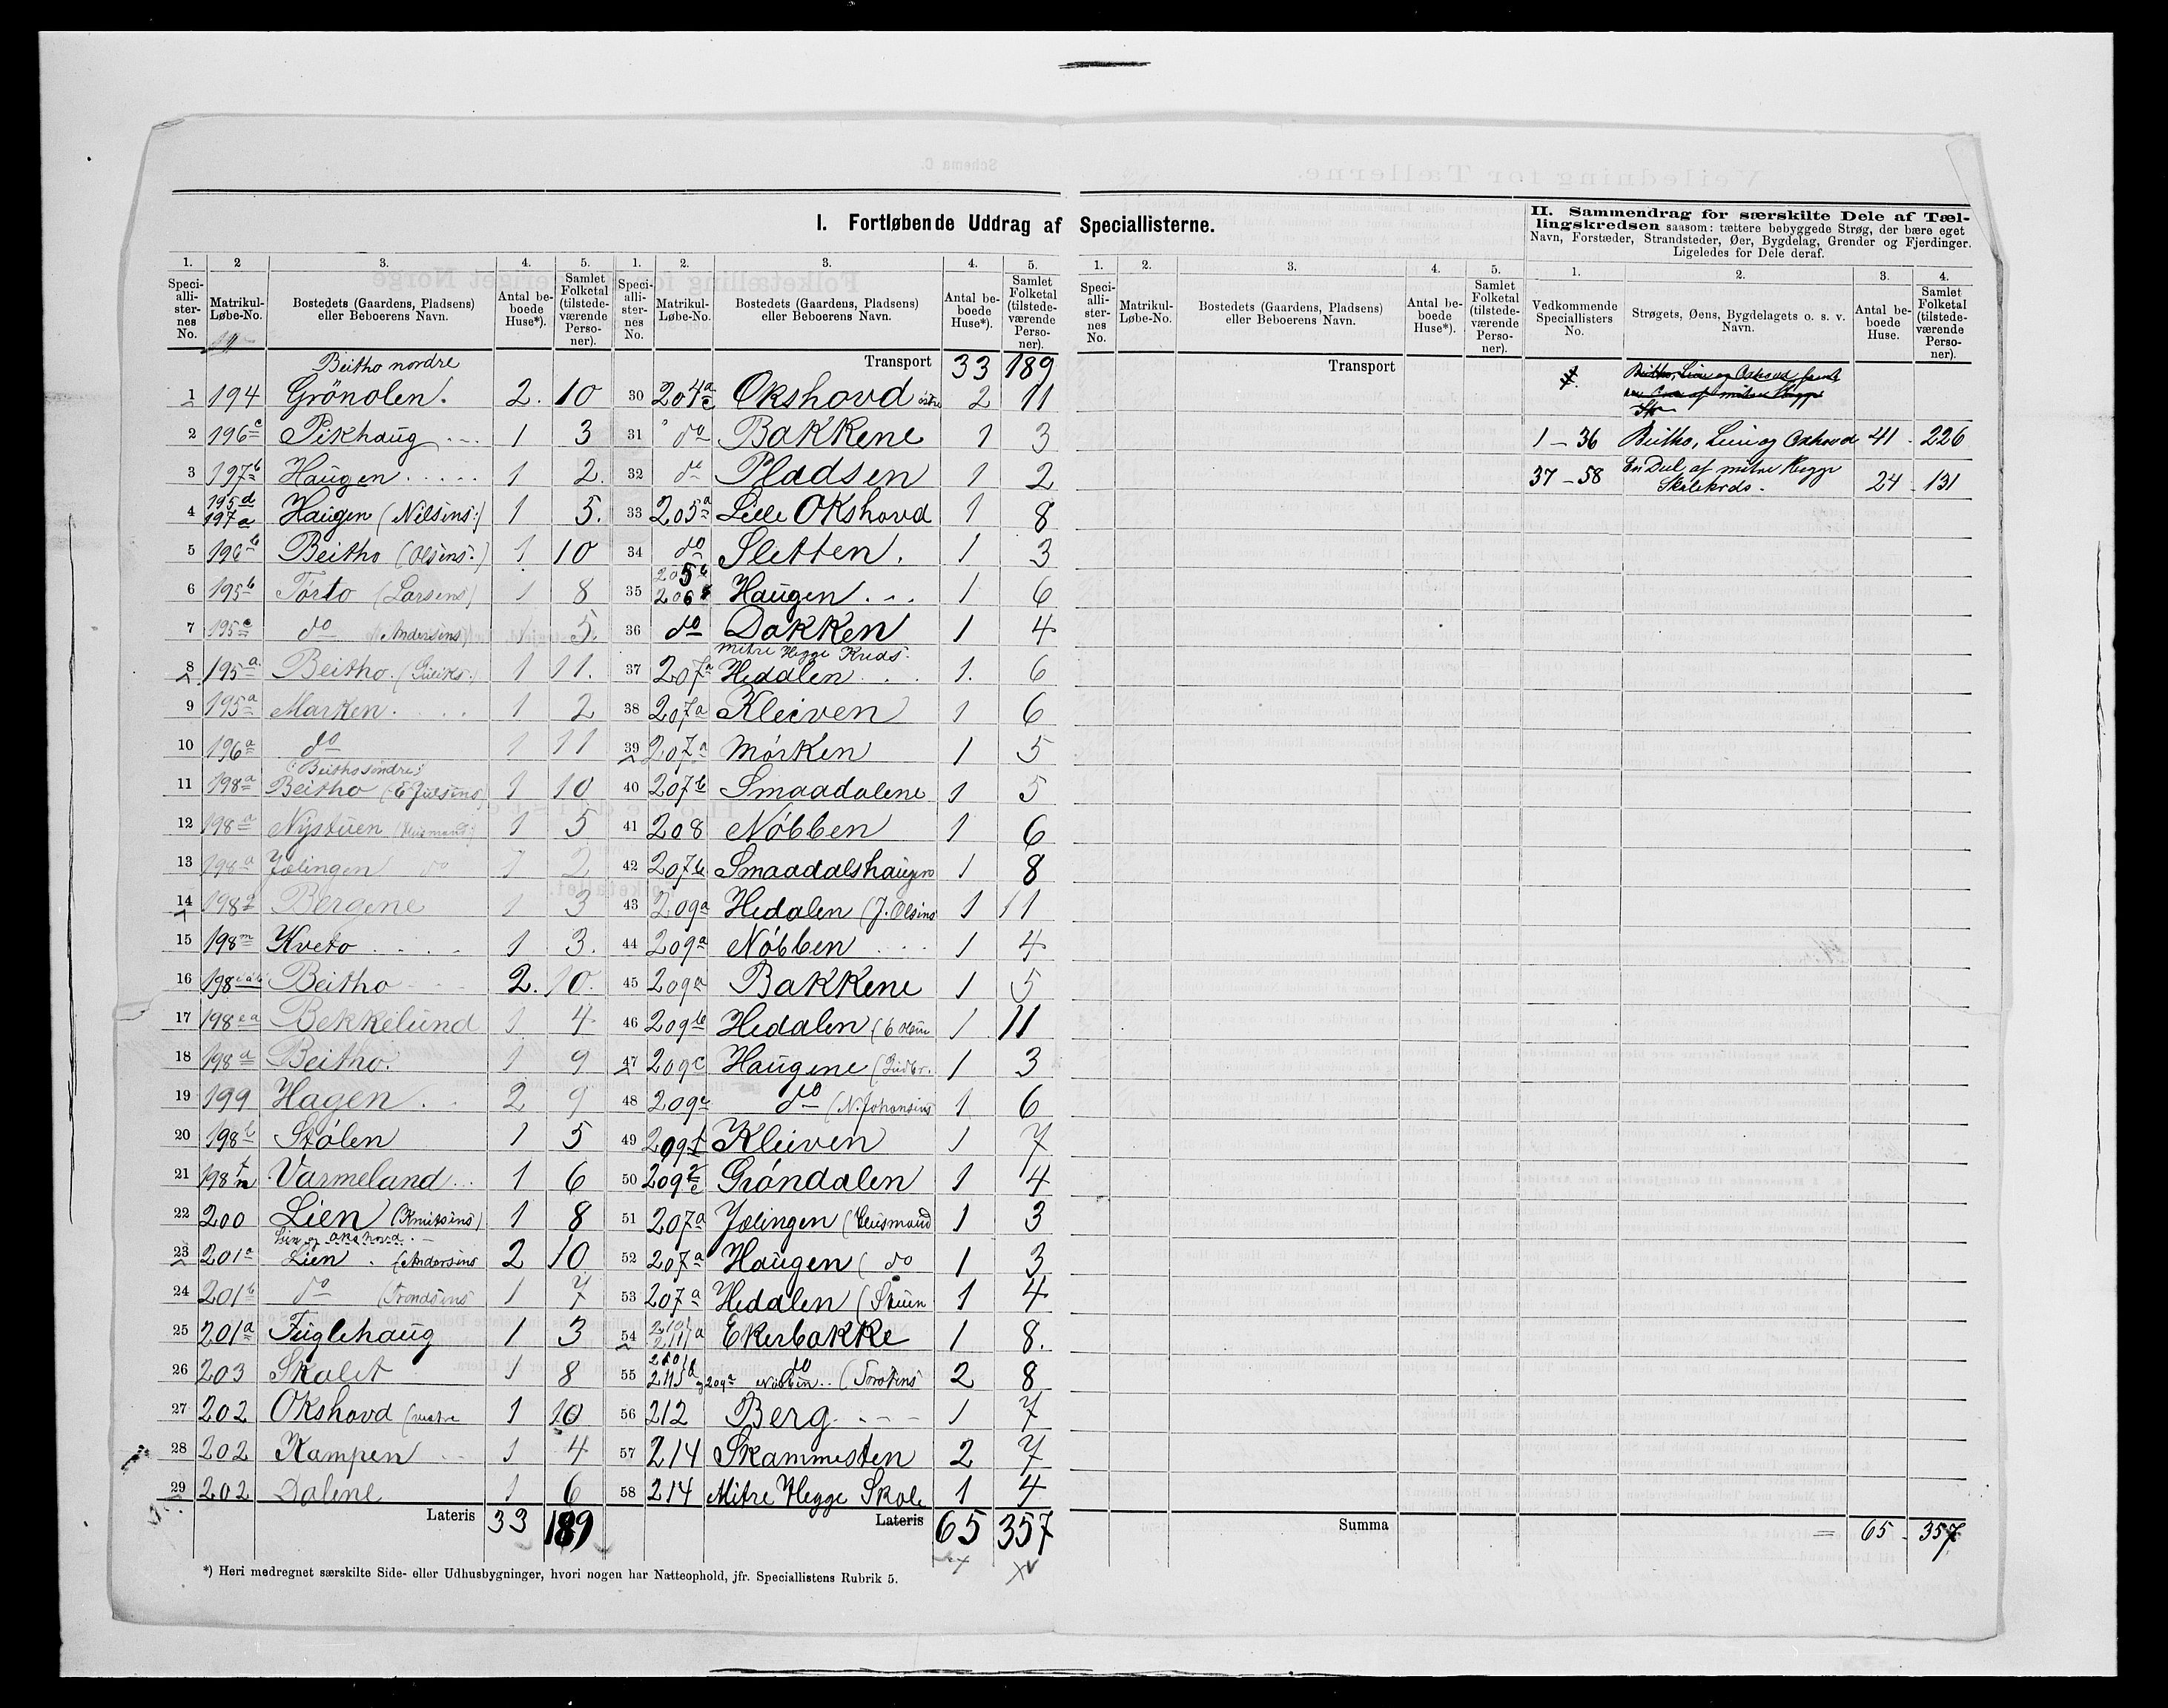 I. Fortløbende Uddrag af Speciallisterne.
II. Sammendrag for særskilte Dele af Tæl-
lingskredsen saasom: tættere bebyggede Strøg, der bære eget
Navn, Forstæder, Strandsteder, Øer, Bygdelag, Grender og Fjerdinger.
Ligeledes for Dele deraf.
1. 2 3. 4. 5. 1. 2. 3. 4. 5. 1. 2. 3. 4. 5. 1. 2. 3. 4.
Speciallisternes No. Matrikul-Løbe-No. Bostedets (Gaardens, Pladsens) eller Beboerens Navn. Antal beboede Huse*). Samlet Folketal (tilstedeværende Personer).
Speciallisternes No. Matrikul-Løbe-No. Bostedets (Gaardens, Pladsens) eller Beboerens Navn. Antal beboede Huse*). Samlet Folketal (tilstedeværende Personer).
Speciallisternes No. Matrikul-Løbe-No. Bostedets (Gaardens, Pladsens) eller Beboerens Navn. Antal beboede Huse*). Samlet Folketal (tilstedeværende Personer).
Vedkommende Speciallisters No. Strøgets, Øens, Bygdelagets o. s. v. Navn. Antal beboede Huse. Samlet Folketal (tilstedeværende Personer).
Beitho nordre
1 194 Grönolen. 2. 10
2 196c Pikhaug 1 3
3 197b Haugen 1 2.
4 195d 197a Haugen (Nilsens:) 1 5.
5 196b Beitho (Olsens.) 1. 10
6 195b Törto (Larsens) 1 8
7 195c do Andersens) 1 5.
8 195a Beitho. 1 11.
9 195a Marken. 1 2
10 196a do 1 11
(Beitho söndre:)
11 198a Beitho 1 10
12 198a Nystuen (Huusmand) 1 5
13 198a Jælingen do 1 2
14 198 Bergene 1 3
15 198m Kveto 1 3.
16 198 Beitho 2. 10.
17 198 Bekkelund 1 4
18 198a Beitho. 1 9
19 199 Hagen. 2 9
20 198 Stölen 1 5
21 198 Varmeland 1 6
22 200 Lien (Knutsens) 1 8
Lien og Okshovd
23 201a Lien. (Andersens 2 10
24 201b do (Trondsens 1 7
25 201a Fuglehaug 1 3
26 203 Skalet 1 8
27 202 Okshovd (vestre 1 10
28 202 Kampen 1 4
29 202 Dalene 1 6
Lateris 33 189
Transport 33 189
30 204 Okshovd östre 2 11
31 do Bakkene 1 3
32 do Pladsen 1 2
33 205a Lille Okshovd 1 8
34 do Sletten. 1 3
35 205b 206 Haugen 1 6
36 do Dokken 1 4
Mitre Hegge Kreds.
37 207a Hedalen 1. 6
38 207a Kleiven 1 6
39 207a Mörken 1 5
40 207b Smaadalene 1 5
41 208 Nöbben 1 6
42 207b Smaadalshaugen 1 8
43 209a Hedalen (J. Olsens 1 11
44 209a Nöbben 1 4
45 209a Bakkene 1 5
46 209b Hedalen 1 11
47 209c Haugene 1 3
48 209 do (N. Johansens 1 6
49 209 Kleiven 1 7
50 209 Gröndalen 1 4
51 207a Jælingen (Huusmand 1 3
52 207a Haugen ( do 1 3
53 207a Hedalen (Stuen 1 4
54 211a Ekerbakke 1 8.
55 209a Nöbben do 2 8
56 212 Berg 1 7
57 214 Skammesten 2 7
58 214 Mitre Hegge Skole 1 4
Lateris 65 357
Transport
Summa
1 – 36 Beitho, Lien og Oxhovd 41 226
37 – 58 En Deel af mitre Hegge
Skolekrds. 24 131
= 65 357
*) Heri medregnet særskilte Side- eller Udhusbygninger, hvori nogen har Natteophold, jfr. Speciallistens Rubrik 5.